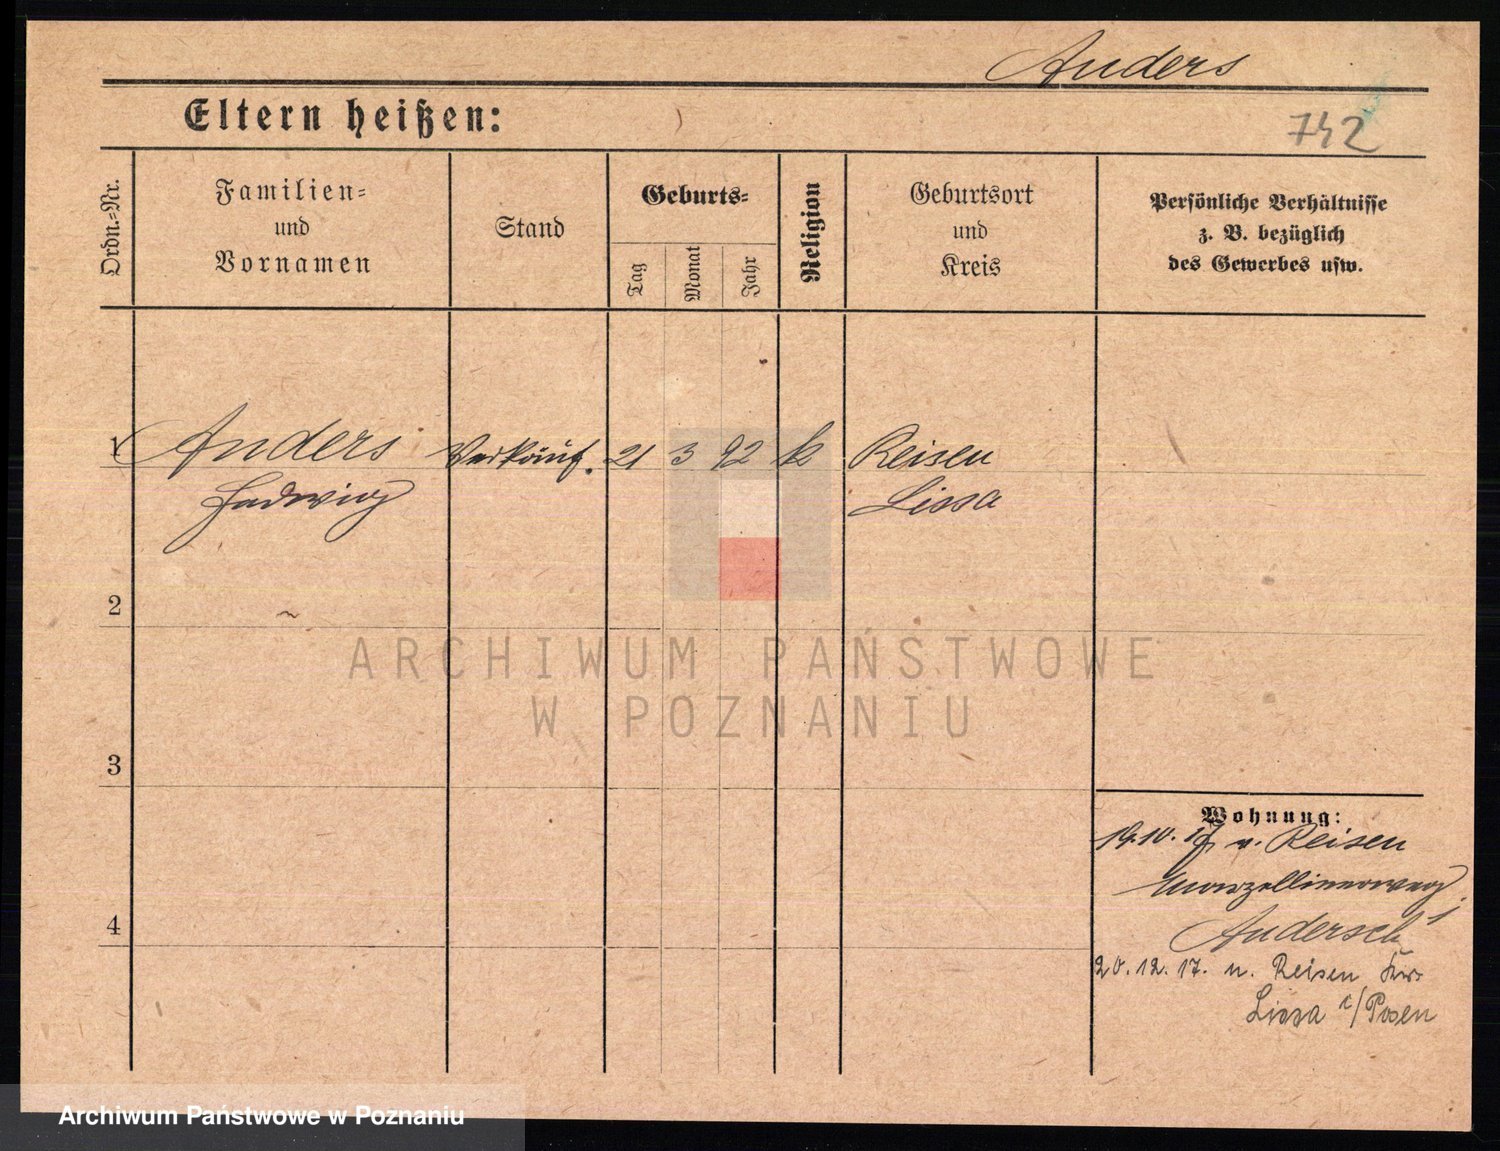 Anders
Eltern heißen:
742
Ordn.-Nr.
Familien-
und
Vornamen
Stand
Geburts-
Tag
Monat
Jahr
Religion
Geburtsort
und
Kreis
Persönliche Verhältnisse
z. B. bezüglich
des Gewerbes usw.
1 Anders Verkäuf. 21 3 92 k Reisen
Hedwig Lissa
2
ARCHIWUM PAŃSTWOWE
W POZNANIU
3
Wohnung:
19.10.17 v. Reisen
4
Andersch
20.12.17. n. Reisen Krs.
Lissa i/Posen
Archiwum Państwowe w Poznaniu